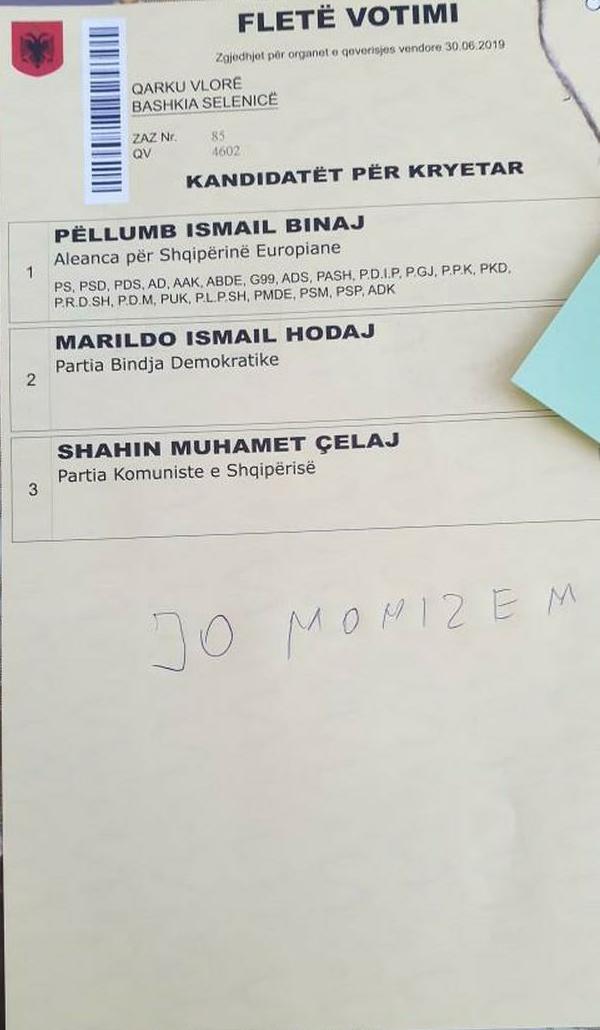 FLETË VOTIMI
Zgjedhjet për organet e qeverisjes vendore 30.06.2019
QARKU VLORË
BASHKIA SELENICË
ZAZ Nr. 85
QV 4602
KANDIDATËT PËR KRYETAR
1
PËLLUMB ISMAIL BINAJ
Aleanca për Shqipërinë Europiane
PS, PSD, PDS, AD, AAK, ABDE, G99, ADS, PASH, P.D.I.P, P.GJ, P.P.K, PKD,
P.R.D.SH, P.D.M, PUK, P.L.P.SH, PMDE, PSM, PSP, ADK
2
MARILDO ISMAIL HODAJ
Partia Bindja Demokratike
3
SHAHIN MUHAMET ÇELAJ
Partia Komuniste e Shqipërisë
JO MONIZEM